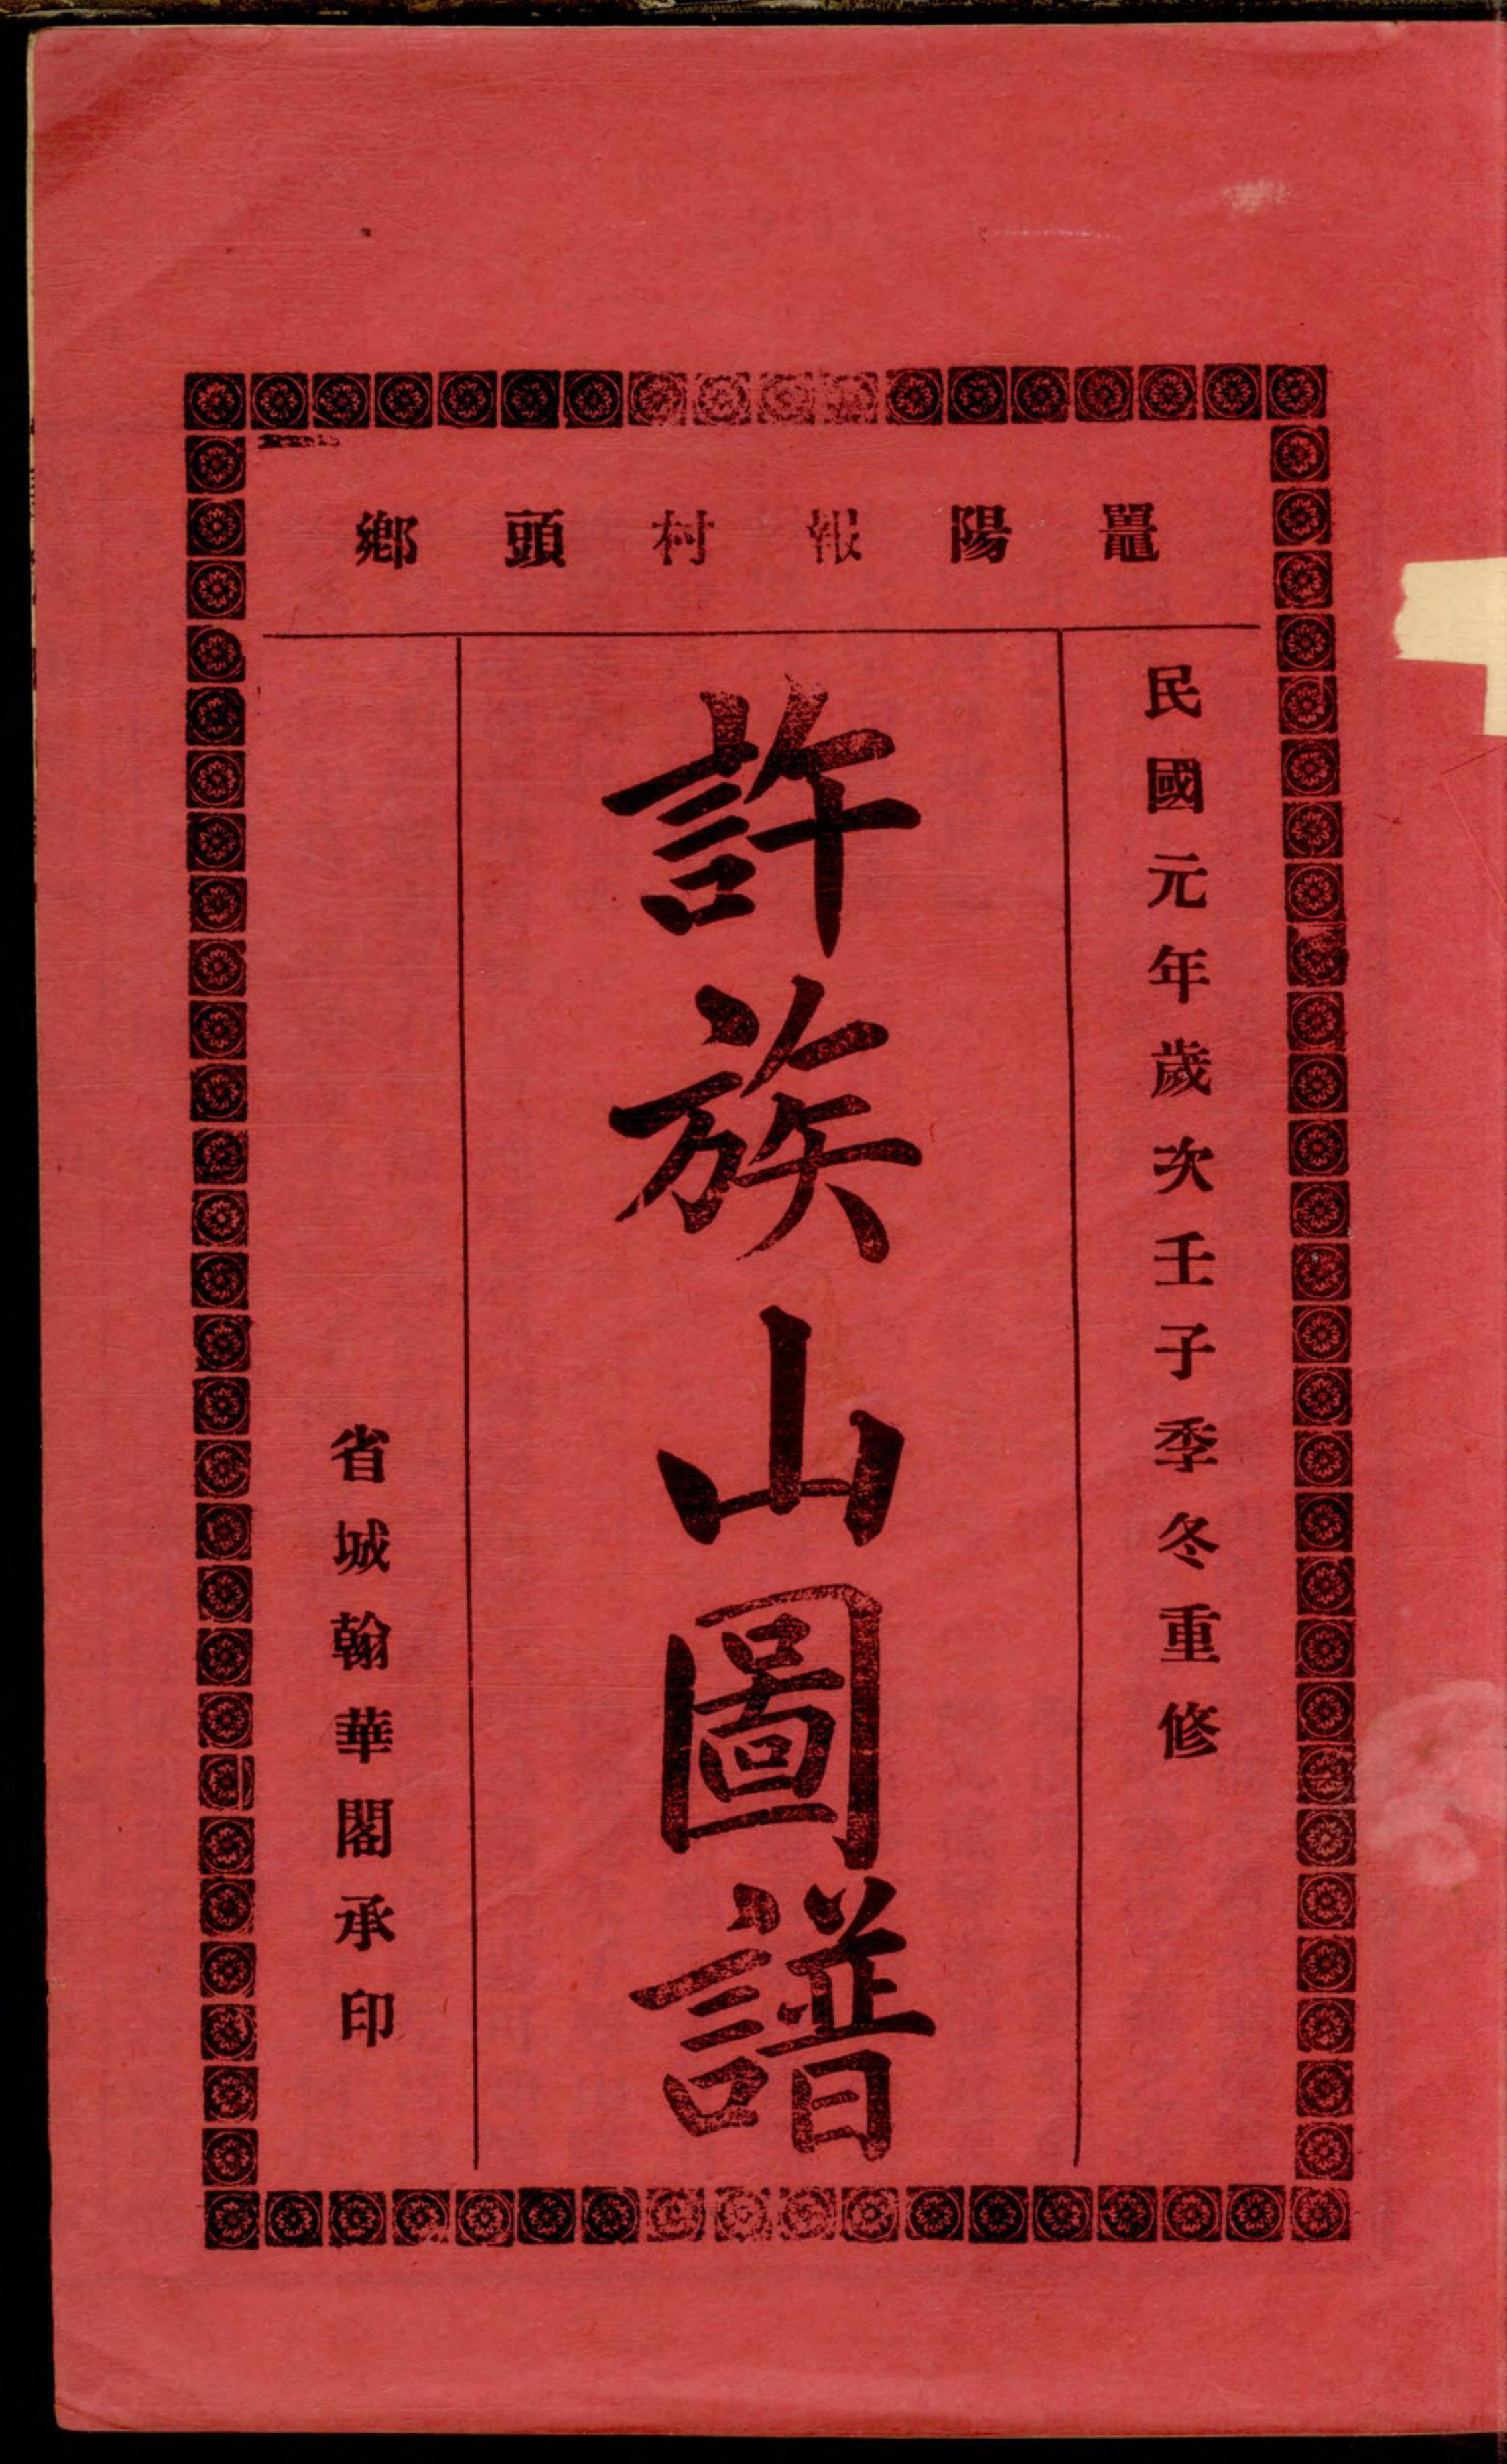 鼉陽報村頭鄉
民國元年歲次壬子季冬重修
許族山圖譜
省城翰華閣承印